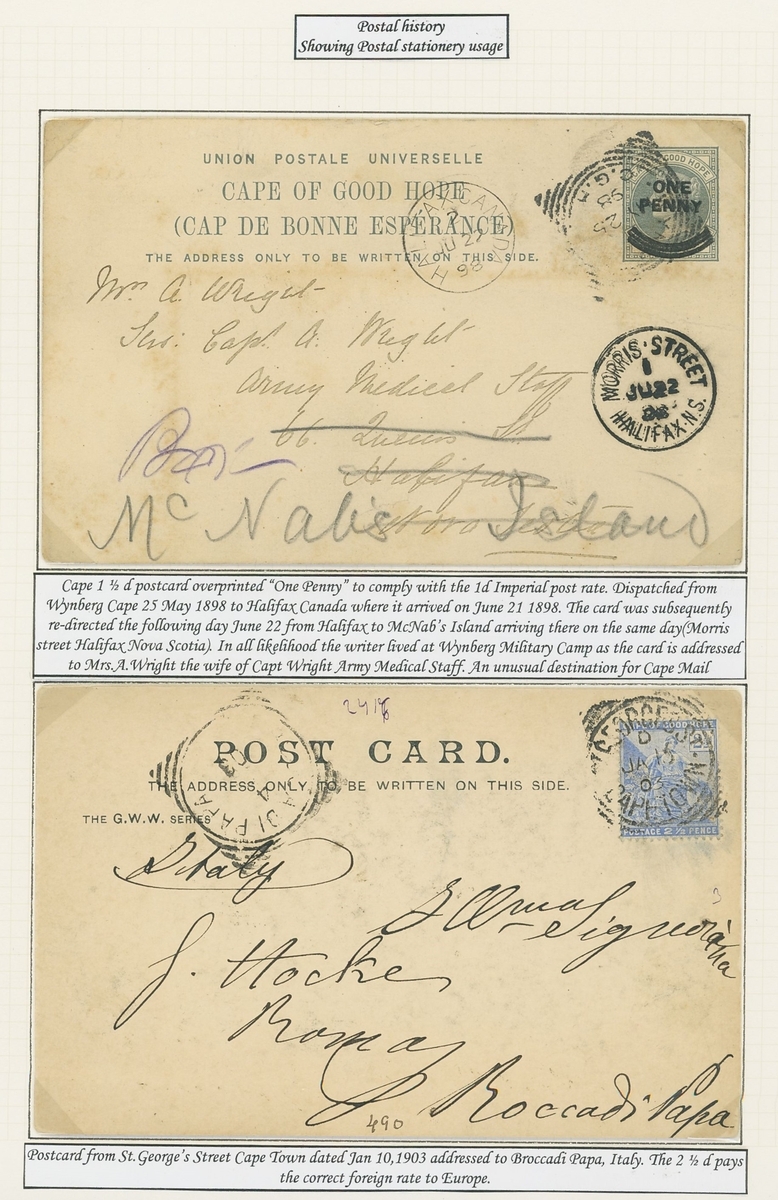 Postal history
Showing Postal stationery usage
UNION POSTALE UNIVERSELLE
CAPE OF GOOD HOPE
(CAP DE BONNE ESPERANCE)
THE ADDRESS ONLY TO BE WRITTEN ON THIS SIDE.
GOOD HOPE
ONE
PENNY
HALIFAX CANADA
JU 22
98
Mrs A. Wright
Capt. A. Wright
Army Medical Staff
66. Queens St.
Halifax
Nova Scotia
McNab's Island
MORRIS·STREET
1
JU 22
98
HALIFAX.N.S.
Cape 1 ½ d postcard overprinted “One Penny” to comply with the 1d Imperial post rate. Dispatched from
Wynberg Cape 25 May 1898 to Halifax Canada where it arrived on June 21 1898. The card was subsequently
re-directed the following day June 22 from Halifax to McNab's Island arriving there on the same day(Morris
street Halifax Nova Scotia). In all likelihood the writer lived at Wynberg Military Camp as the card is addressed
to Mrs.A.Wright the wife of Capt Wright Army Medical Staff. An unusual destination for Cape Mail
POST CARD.
THE ADDRESS ONLY TO BE WRITTEN ON THIS SIDE.
THE G.W.W. SERIES
DI PAPA
CAPE TOWN
JA
03
POSTAGE 2½ PENCE
Italy
Signorina
J. Hocke
Roma
Rocca di Papa
490
Postcard from St.George's Street Cape Town dated Jan 10,1903 addressed to Broccadi Papa, Italy. The 2 ½ d pays
the correct foreign rate to Europe.